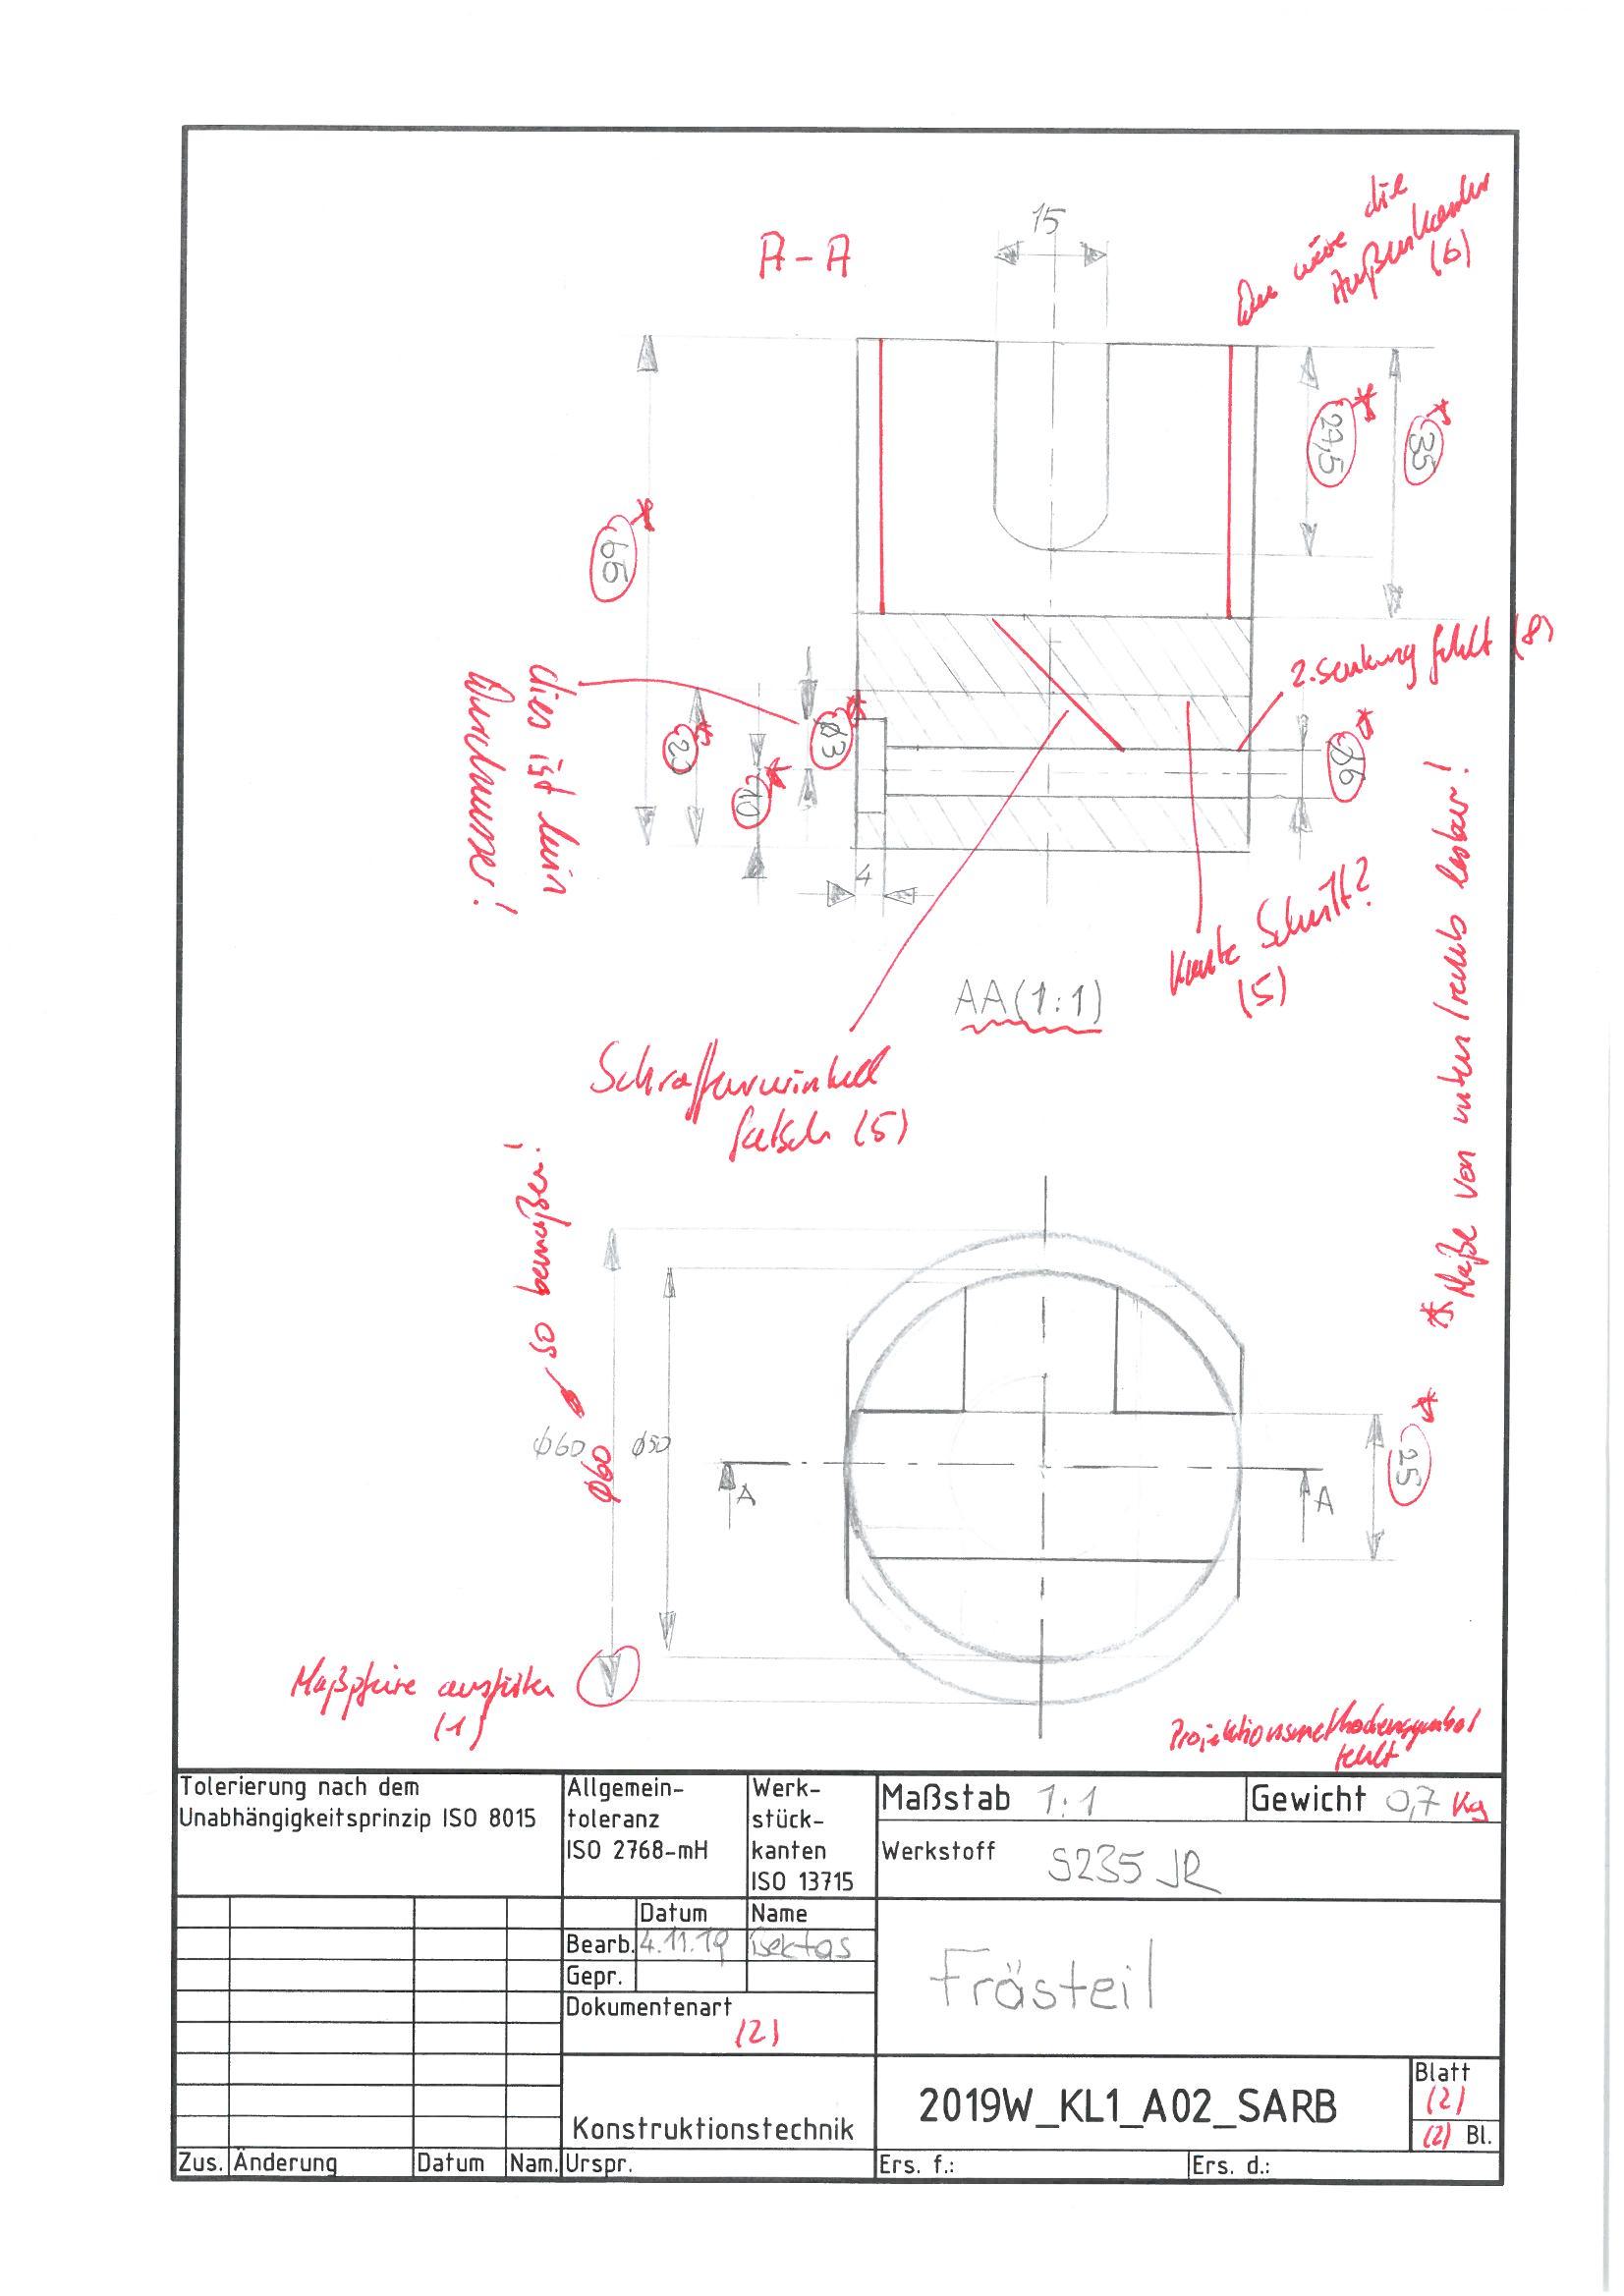 15
A-A
die
wäre
Außenkanten
(6)
27,5
35
65
2. Senkung fehlt (8)
dies ist kein
Durchmesser!
23
10
Ø3
Ø6
4
Kante Schnitt?
(5)
AA(1:1)
Schraffurwinkel
falsch (5)
* Maße von unten/rechts lesbar!
so bemaßen!
ϕ60
ϕ60
ϕ50
A
A
25
Maßpfeile ausfüllen
(1)
Projektionsmethodensymbol
fehlt
Tolerierung nach dem
Unabhängigkeitsprinzip ISO 8015
Allgemein-
toleranz
ISO 2768-mH
Werk-
stück-
kanten
ISO 13715
Maßstab 1:1
Gewicht 0,7 Kg
Werkstoff S235 JR
Datum Name
Bearb. 4.11.19 Bektas
Gepr.
Dokumentenart
(2)
Frästeil
Konstruktionstechnik
2019W_KL1_A02_SARB
Blatt
(2)
(2) Bl.
Zus. Änderung Datum Nam. Urspr. Ers. f.: Ers. d.: